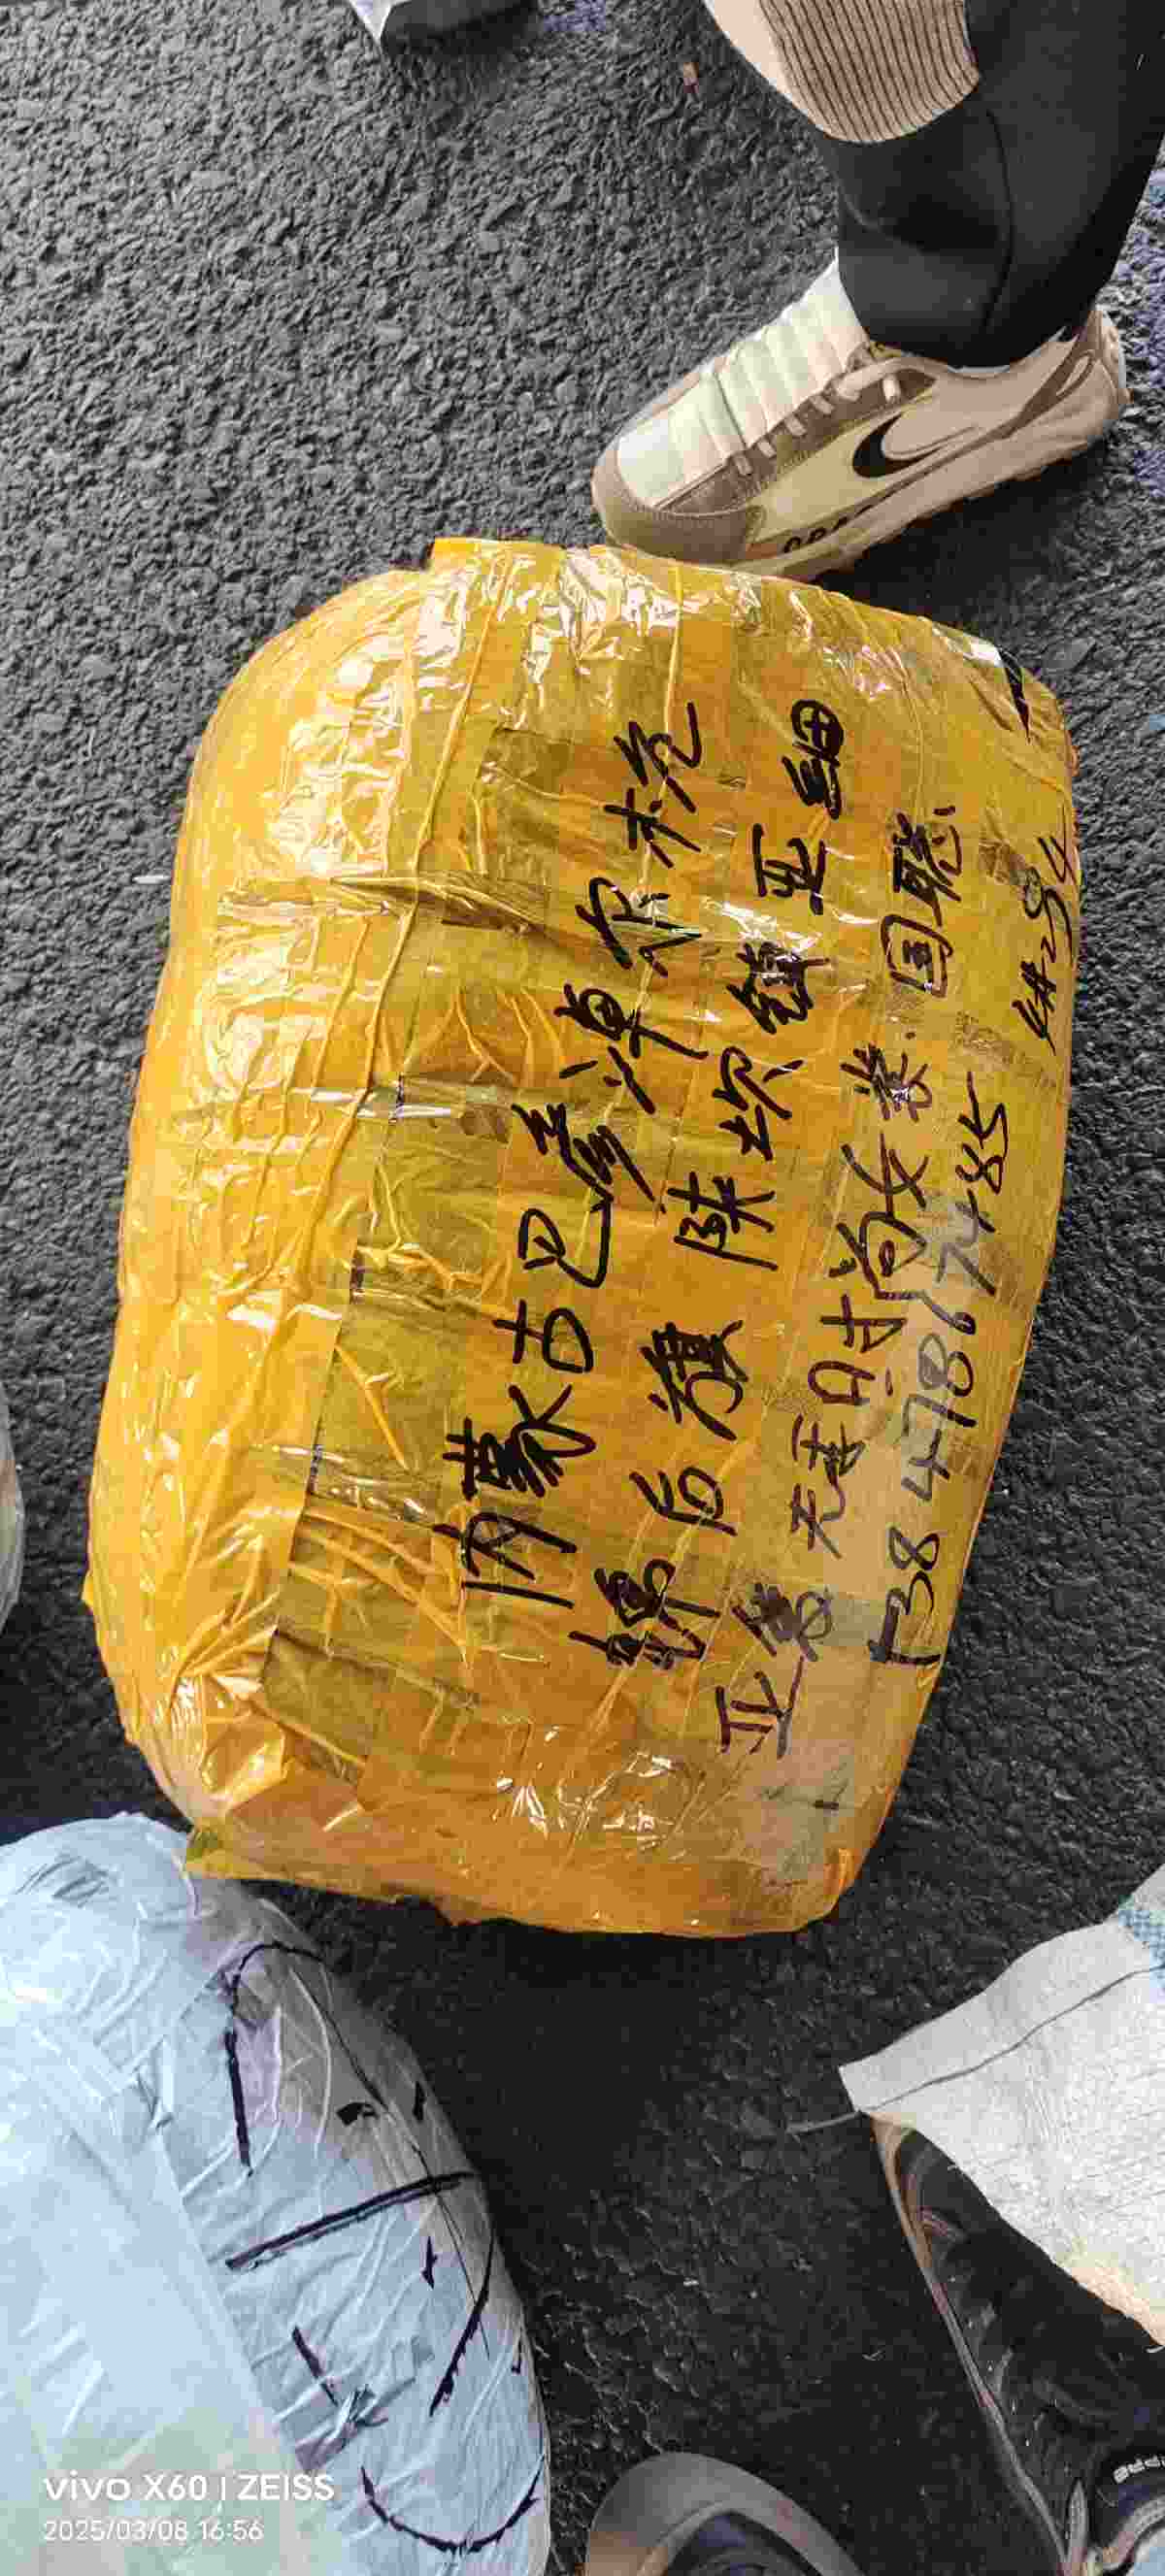 内蒙古巴彦淖尔杭
锦后旗陕坝镇亚细
亚 时尚女装.国聪
13847867485
vivo X60 | ZEISS
2025/03/08 16:56